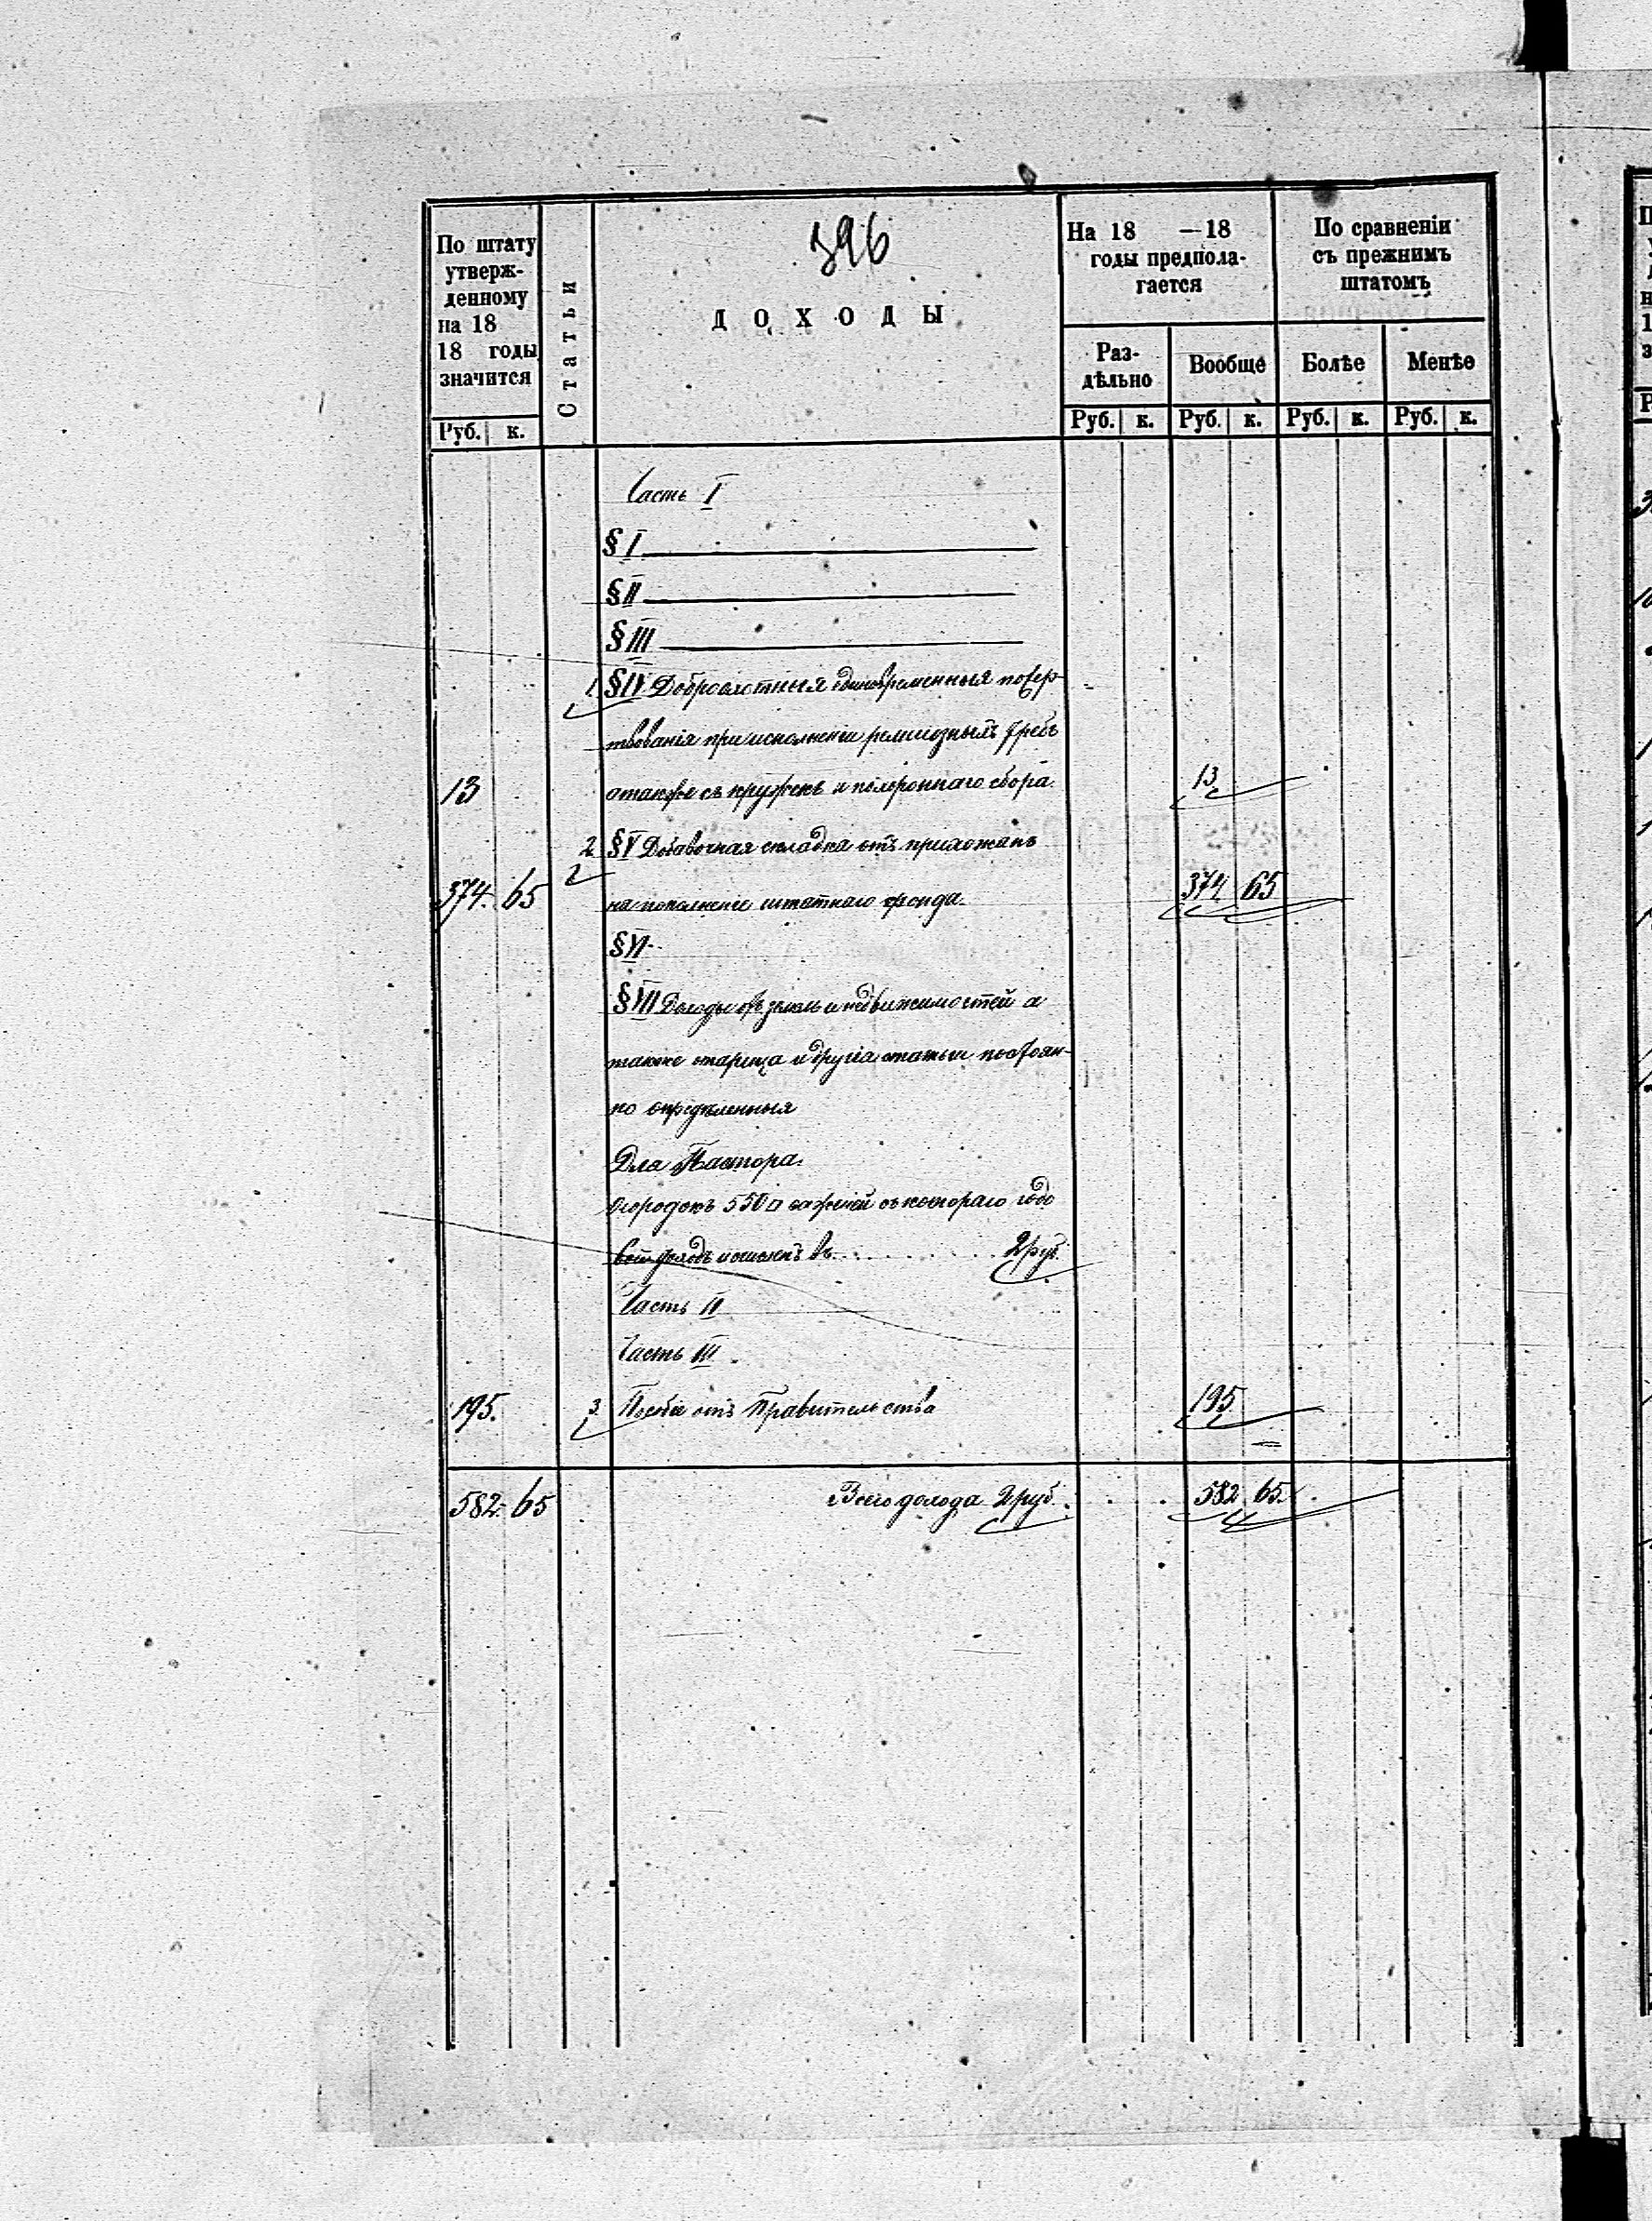 396
По штату утверж-денному на 18 18 годы значится
Статьи
ДОХОДЫ
На 18 —18 годы предпола-гается
По сравненіи съ прежнимъ штатомъ
Раз-дѣльно
Вообще
Болѣе
Менѣе
Руб. к.
Руб. к. Руб. к. Руб. к. Руб. к.
Часть I
§ I
§ II
§ III
1. § IV Доброхотныя единовременныя пожер-
твованія при исполненіи религіозныхъ требъ
13 а также съ кружекъ и похороннаго сбора. 13
2 § V Добавочная складка отъ прихожанъ
374. 65 на пополненіе штатнаго фонда. 374 65
§ VI
§ VII Доходы отъ земль и недвижимостей а
также и другія статьи постоян-
но опредѣленныя
Для Пастора.
Огородокъ 550 □ саженей съ котораго годо
вой доходъ исчисленъ въ . . . . . . . . 2 руб.
Часть II
Часть III.
195. 3. Пособіе отъ Правительства 195
582. 65 Всего дохода 2 руб. . . . 582 65.